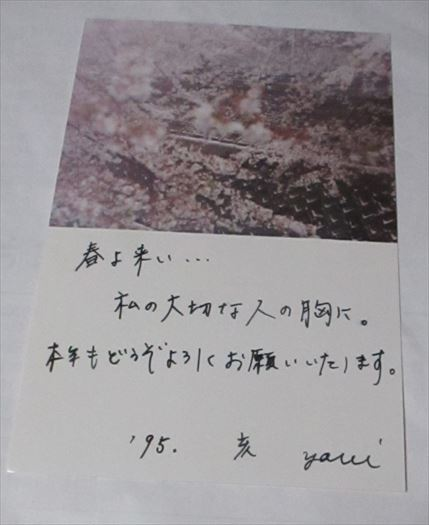 春よ来い...
私の大切な人の胸に。
本年もどうぞよろしくお願いいたします。
'95. 亥 yumi